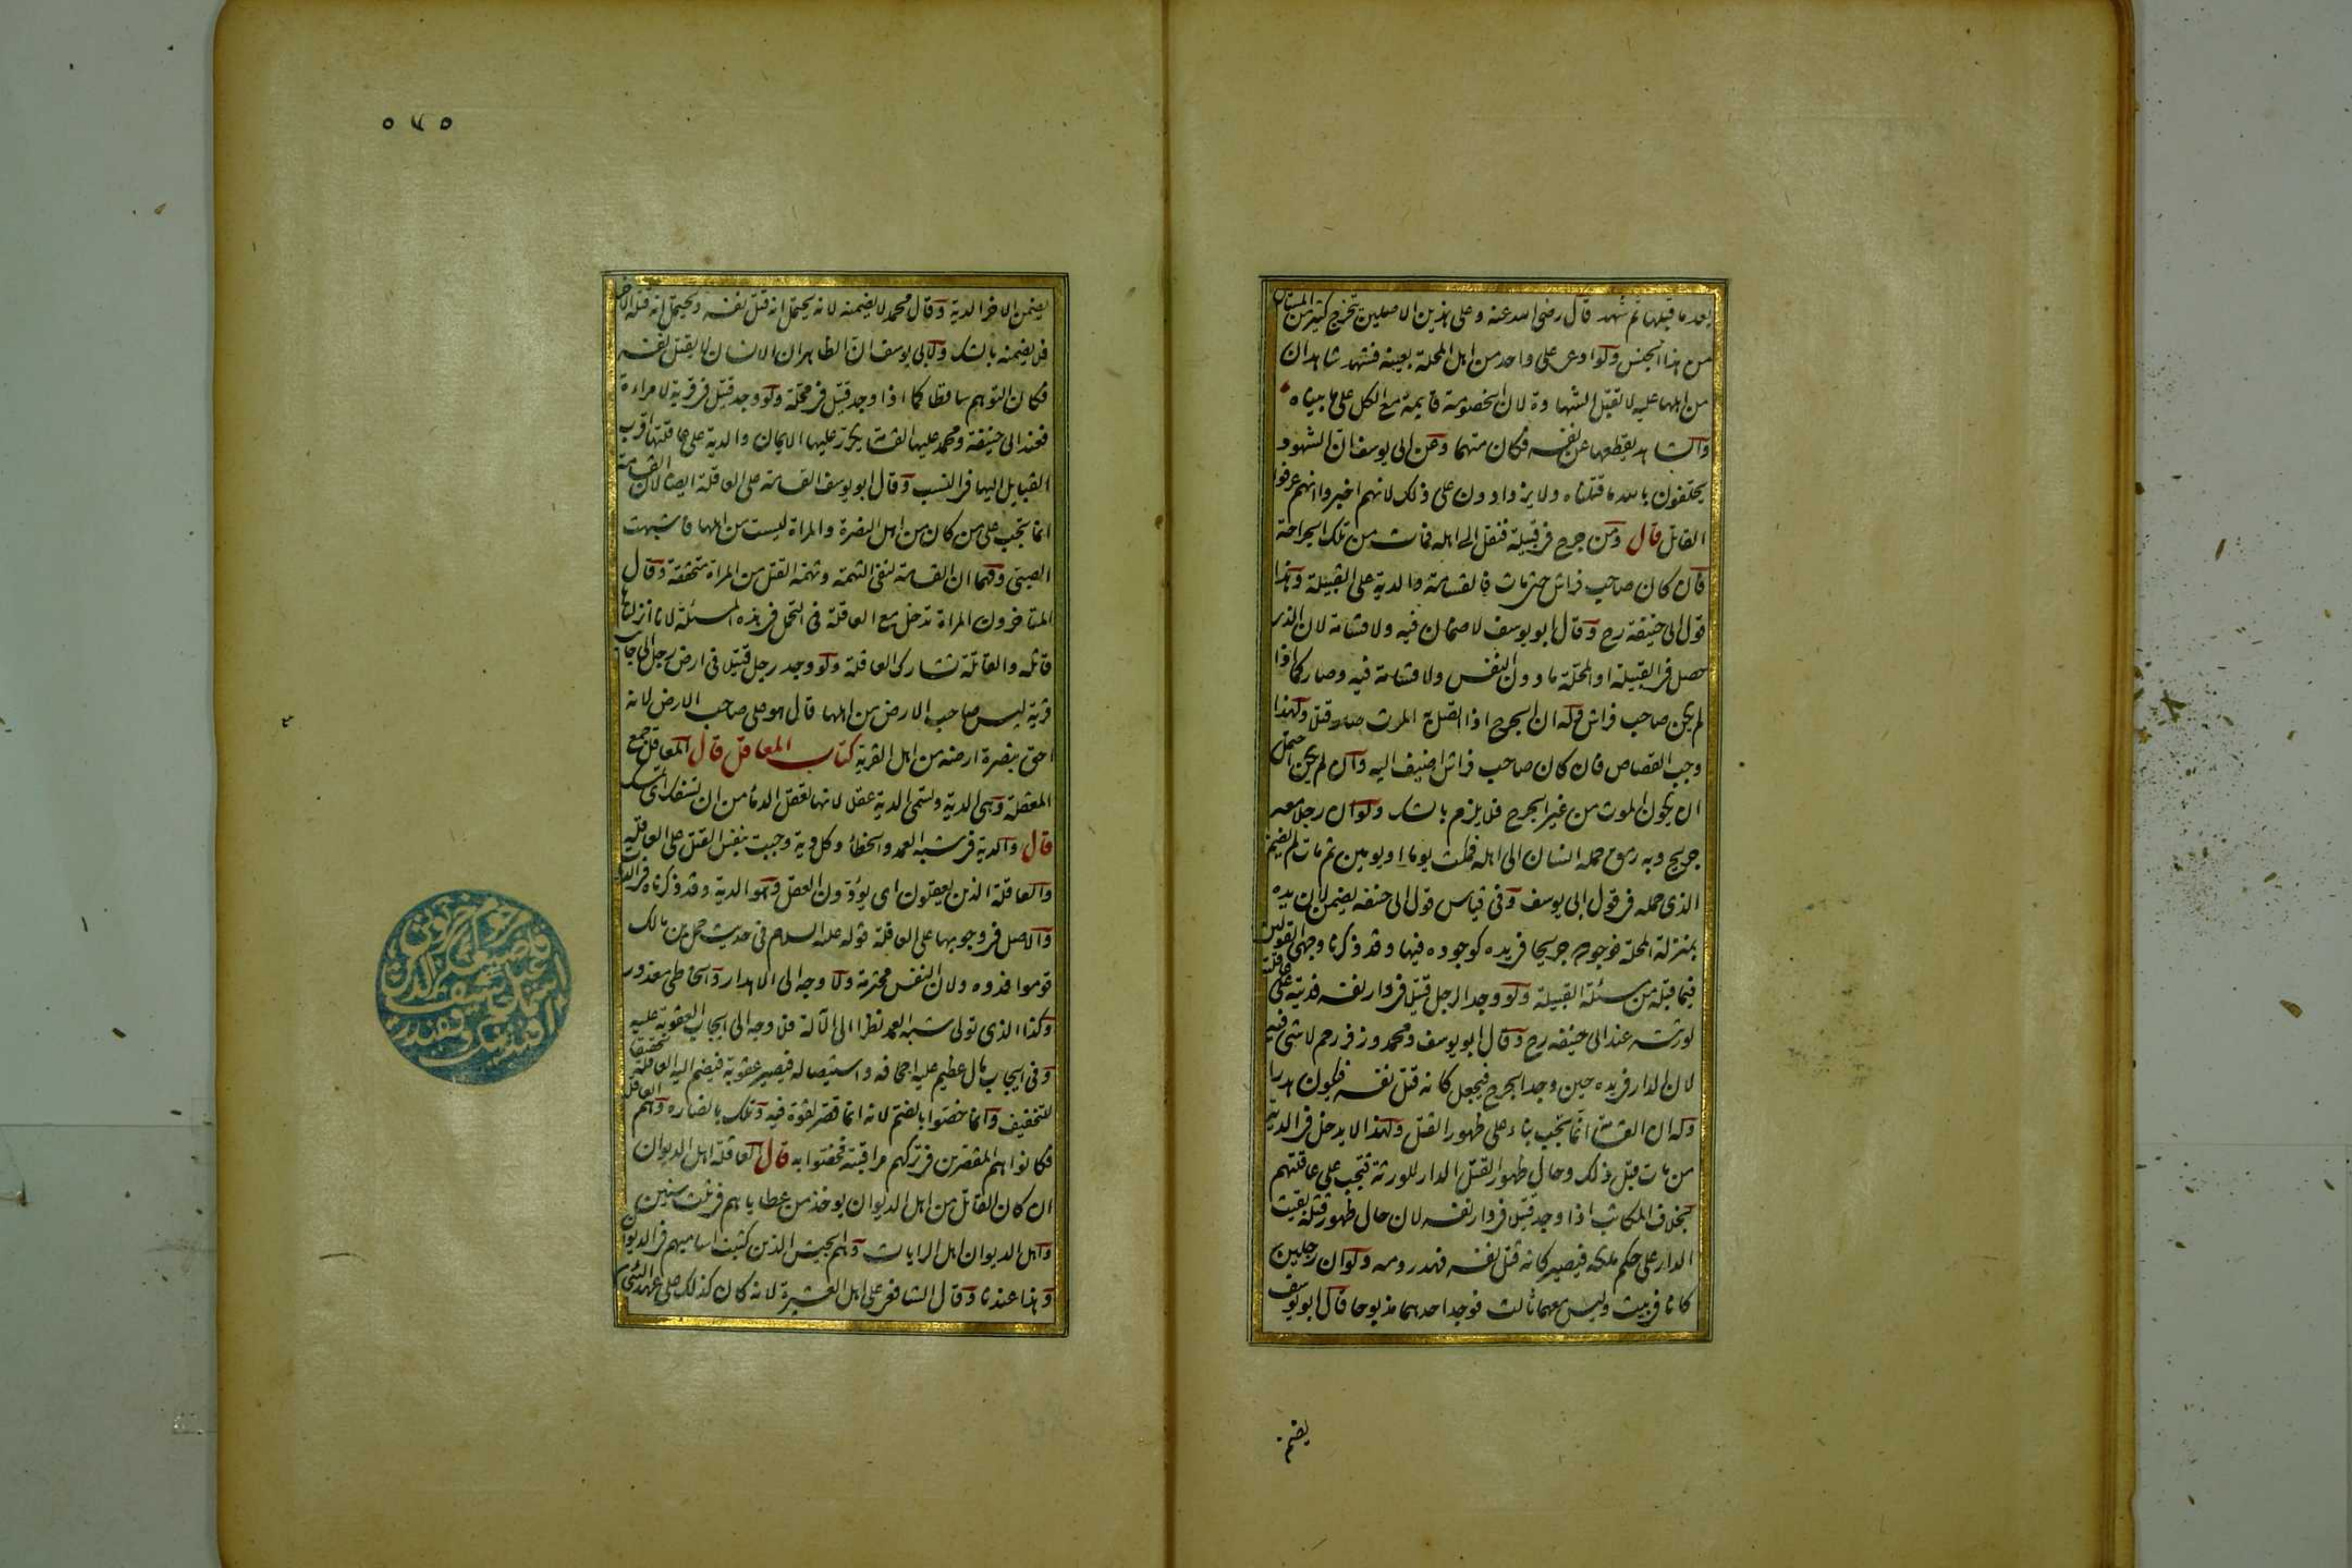 بعد ما قبلها ثم شهد قال رضى الله عنه وعلى هذين الاصلين يتخرج كثير من المسائل
من هذا الجنس ولو ادعى على واحد من اهل المحلة بعينه فشهد شاهدان
من اهلها عليه لا تقبل الشهادة لان الخصومة قايمة مع الكل على ما بيناه
والشاهد يقطعها عن نفسه فكان متهما وعن ابى يوسف ان الشهود
يحلفون بالله ما قتلناه ولا يزدادون على ذلك لانهم اخبروا انهم عرفوا
القاتل قال ومن جرح فى قبيلة فنقل الى اهله فمات من تلك الجراحة
فان كان صاحب فراش حتى مات فالقسامة والدية على القبيلة وهذا
قول ابى حنيفة رح وقال ابو يوسف لا ضمان فيه ولا قسامة لان الذى
حصل فى القبيلة او المحلة ما دون النفس ولا قسامة فيه وصار كما اذا
لم يكن صاحب فراش وله ان الجرح اذا اتصل به الموت صار قتلا ولهذا
وجب القصاص فان كان صاحب فراش اضيف اليه وان لم يكن احتمل
ان يكون الموت من غير الجرح فلا يلزم بالشك ولو ان رجلا معه
جريح وبه رمق حمله انسان الى اهله فمكث يوما او يومين ثم مات لم يضمن
الذى حمله فى قول ابى يوسف وفى قياس قول ابى حنيفه يضمن لان يده
بمنزلة المحلة فوجوده جريحا فى يده كوجوده فيها وقد ذكرنا وجهى القولين
فيما قبله من مسئلة القبيلة ولو وجد الرجل قتيلا فى دار نفسه فديته على عاقلته
لورثته عند ابى حنيفه رح وقال ابو يوسف ومحمد وزفر رحم لا شى فيه
لان الدار فى يده حين وجد الجرح فيجعل كانه قتل نفسه فيكون هدرا
وله ان القسامة انما تجب بناء على ظهور القتل ولهذا لا يدخل فى الدية
من مات قبل ذلك وحال ظهور القتل الدار للورثة فتجب على عاقلتهم
بخلاف المكاتب اذا وجد قتيلا فى دار نفسه لان حال ظهور قتله بقيت
الدار على حكم ملكه فيصير كانه قتل نفسه فهدر دمه ولو ان رجلين
كانا فى بيت وليس معهما ثالث فوجد احدهما مذبوحا قال ابو يوسف
يضمن
٥٧٥
يضمن الاخر الدية وقال محمد لا يضمنه لانه يحتمل انه قتل نفسه ويحتمل انه قتله الاخر
فلا يضمنه بالشك ولابى يوسف ان الظاهر ان الانسان لا يقتل نفسه
فكان التوهم ساقطا كما اذا وجد قتيل فى محلة ولو وجد قتيل فى قرية لامراءة
فعند ابى حنيفة ومحمد عليها القسامة يكرر عليها الايمان والدية على عاقلتها اقرب
القبايل اليها فى النسب وقال ابو يوسف القسامة على العاقلة ايضا لان القسامة
انما تجب على من كان من اهل النصرة والمراة ليست من اهلها فاشبهت
الصبى ولهما ان القسامة لنفى التهمة وتهمة القتل من المراة متحققة وقال
المتاخرون المراة تدخل مع العاقلة فى التحمل فى هذه المسئلة لانا انزلناها
قاتلة والقاتلة تشارك العاقلة ولو وجد رجل قتيلا فى ارض رجل الى جانب
قرية ليس صاحب الارض من اهلها قال هو على صاحب الارض لانه
احق بنصرة ارضه من اهل القرية كتاب المعاقل قال المعاقل جمع
المعقلة وهى الدية وتسمى الدية عقلا لانها تعقل الدماء من ان تسفك اى تمسك
قال والدية فى شبه العمد والخطاء وكل دية وجبت بنفس القتل على العاقلة
والعاقلة الذين يعقلون اى يؤدون العقل وهو الدية وقد ذكرناه فى الديات
والاصل فى وجوبها على العاقلة قوله عليه السلام فى حديث حمل بن مالك
قوموا فدوه ولان النفس محترمة ولا وجه الى الاهدار والخاطى معذور
وكذا الذى تولى شبه العمد نظرا الى الآلة فلا وجه الى ايجاب العقوبة عليه
وفى ايجاب مال عظيم عليه اجحافه واستيصاله فيصير عقوبة فيضم اليه العاقلة تحقيقا
للتخفيف وانما خصوا بالضم لانه انما قصر لقوة فيه وتلك بانصاره وهم العاقلة
فكانوا هم المقصرين فى تركهم مراقبته فخصوا به قال العاقلة اهل الديوان
ان كان القاتل من اهل الديوان يوخذ من عطاياهم فى ثلث سنين
واهل الديوان اهل الرايات وهم الجيش الذين كتبت اساميهم فى الديوان
وهذا عندنا وقال الشافعى على اهل العشيرة لانه كان كذلك على عهد النبى